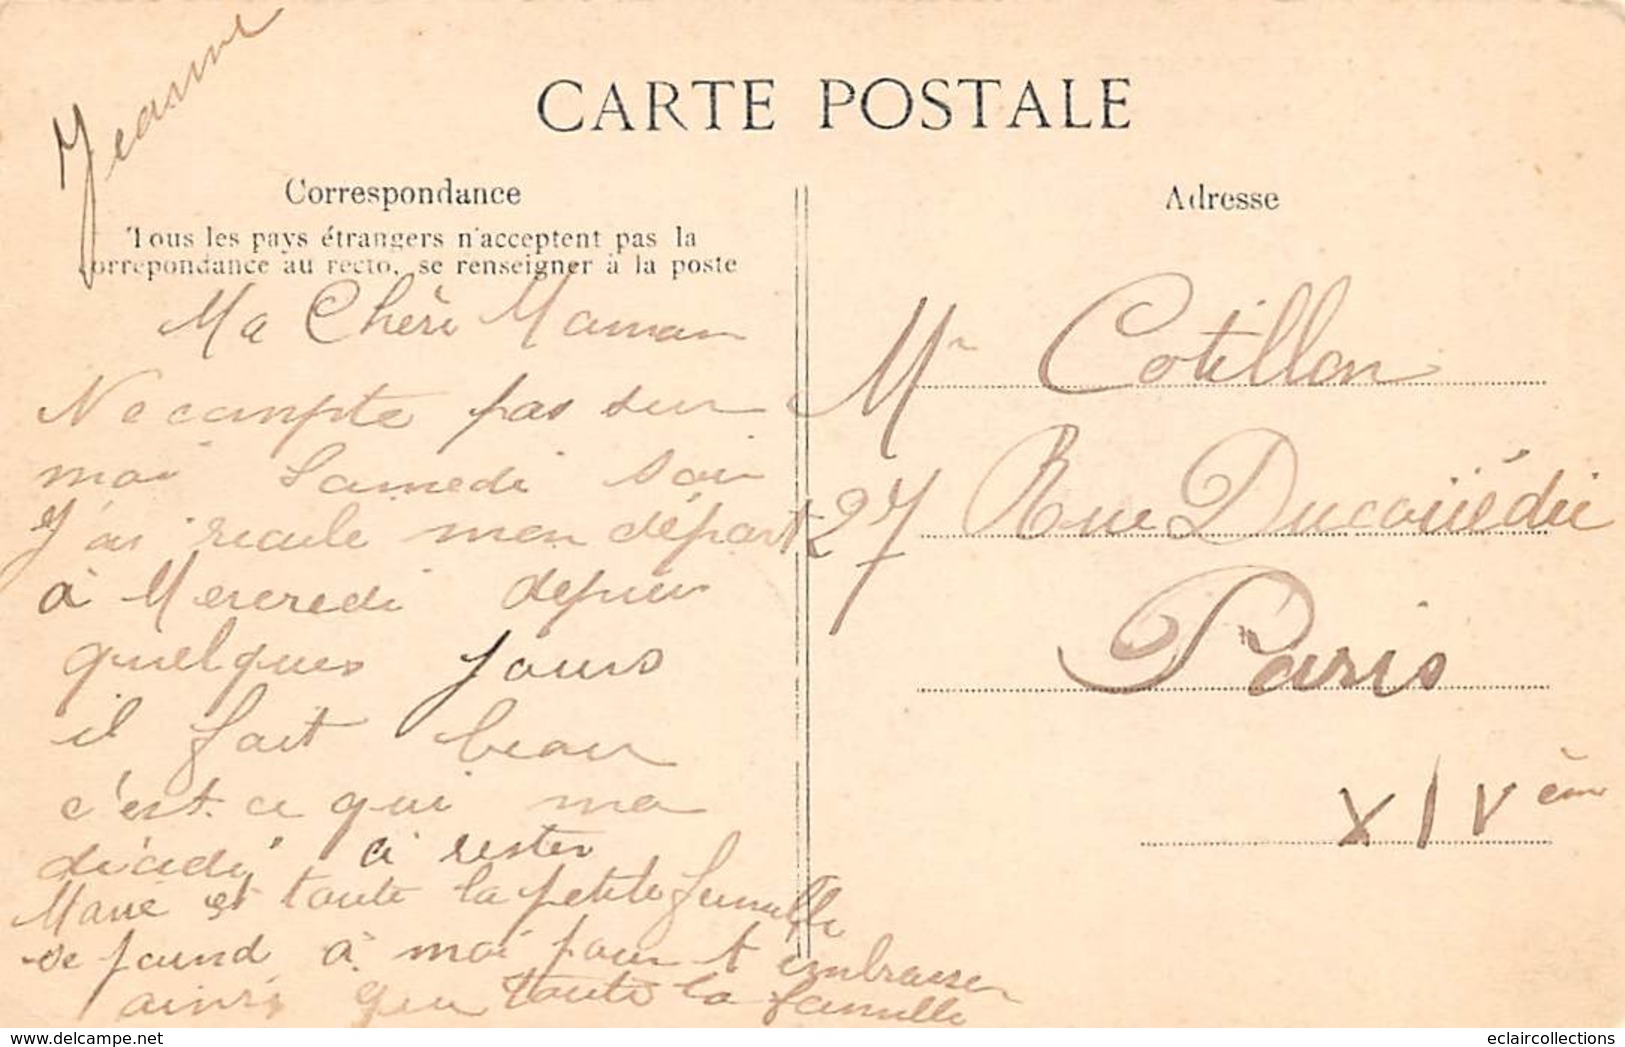 Jeanne
CARTE POSTALE
Correspondance
Tous les pays étrangers n'acceptent pas la
correpondance au recto, se renseigner à la poste
Ma Chère Maman
Ne compte pas sur
moi Samedi soir
J'ai reculé mon départ
à Mercredi depuis
quelques jours
il fait beau
c'est ce qui ma
décidé à rester
Marie et toute la petite famille
se joind à moi pour t embrasser
ainsi que toute la famille
Adresse
Cotillon
27 Rue Ducouëdic
Paris
XIV ème
eclaircollections
www.delcampe.net